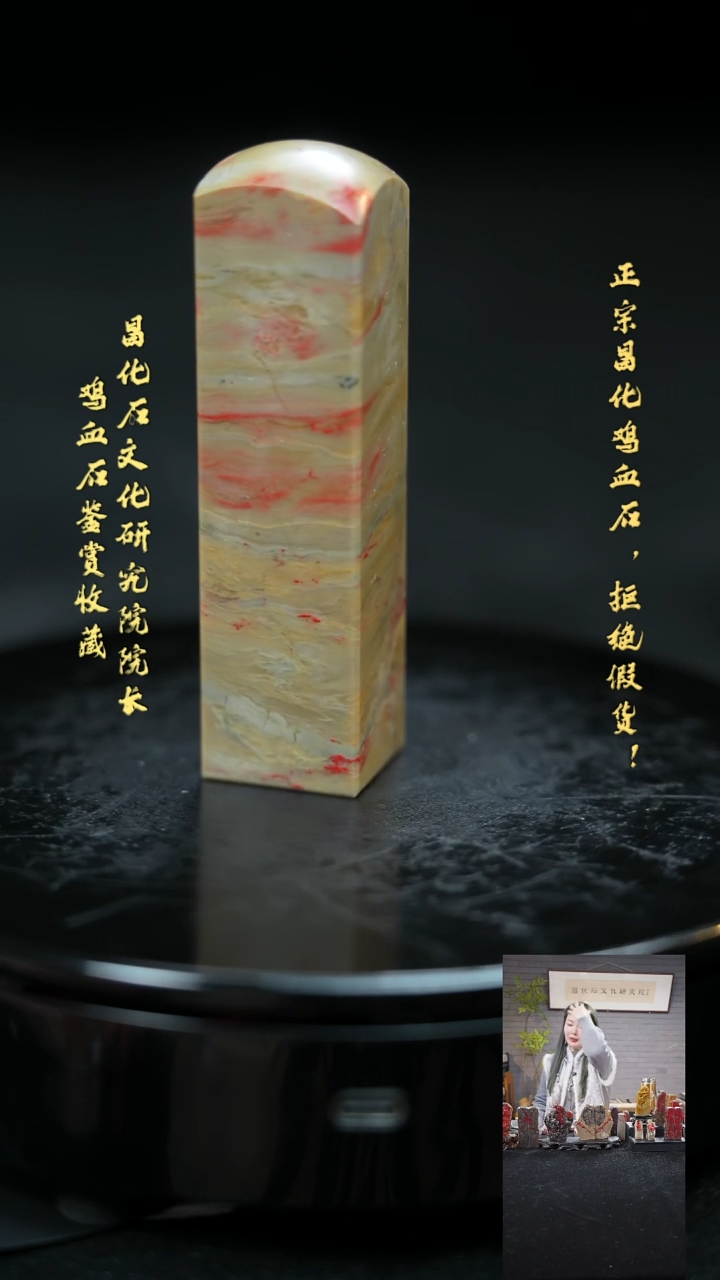 正宗昌化鸡血石，拒绝假货！
昌化石文化研究院院长
鸡血石鉴赏收藏
昌化石文化研究院